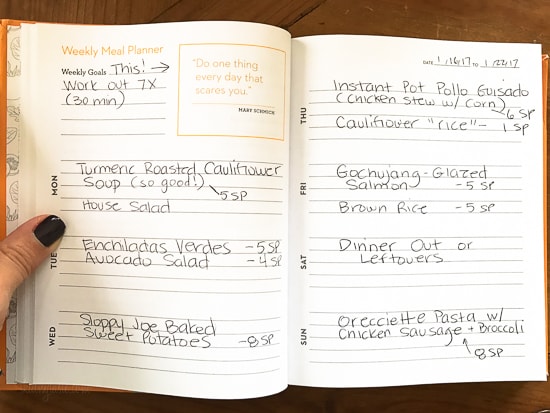 Weekly Meal Planner
Weekly Goals This! →
Work out 7x
(30 min)
"Do one thing
every day that
scares you."
MARY SCHMICH
MON
Turmeric Roasted Cauliflower
Soup (so good!)
5 SP
House Salad
TUE
Enchiladas Verdes - 5 SP
Avocado Salad - 4 SP
WED
Sloppy Joe Baked
Sweet Potatoes - 8 SP
DATE 1/16/17 TO 1/22/17
THU
Instant Pot Pollo Guisado
(Chicken stew w/ Corn)
6 SP
Cauliflower "rice" - 1 SP
FRI
Gochujang-Glazed
Salmon - 5 SP
Brown Rice - 5 SP
SAT
Dinner Out or
Leftovers
SUN
Orecciette Pasta w/
Chicken Sausage + Broccoli
8 SP